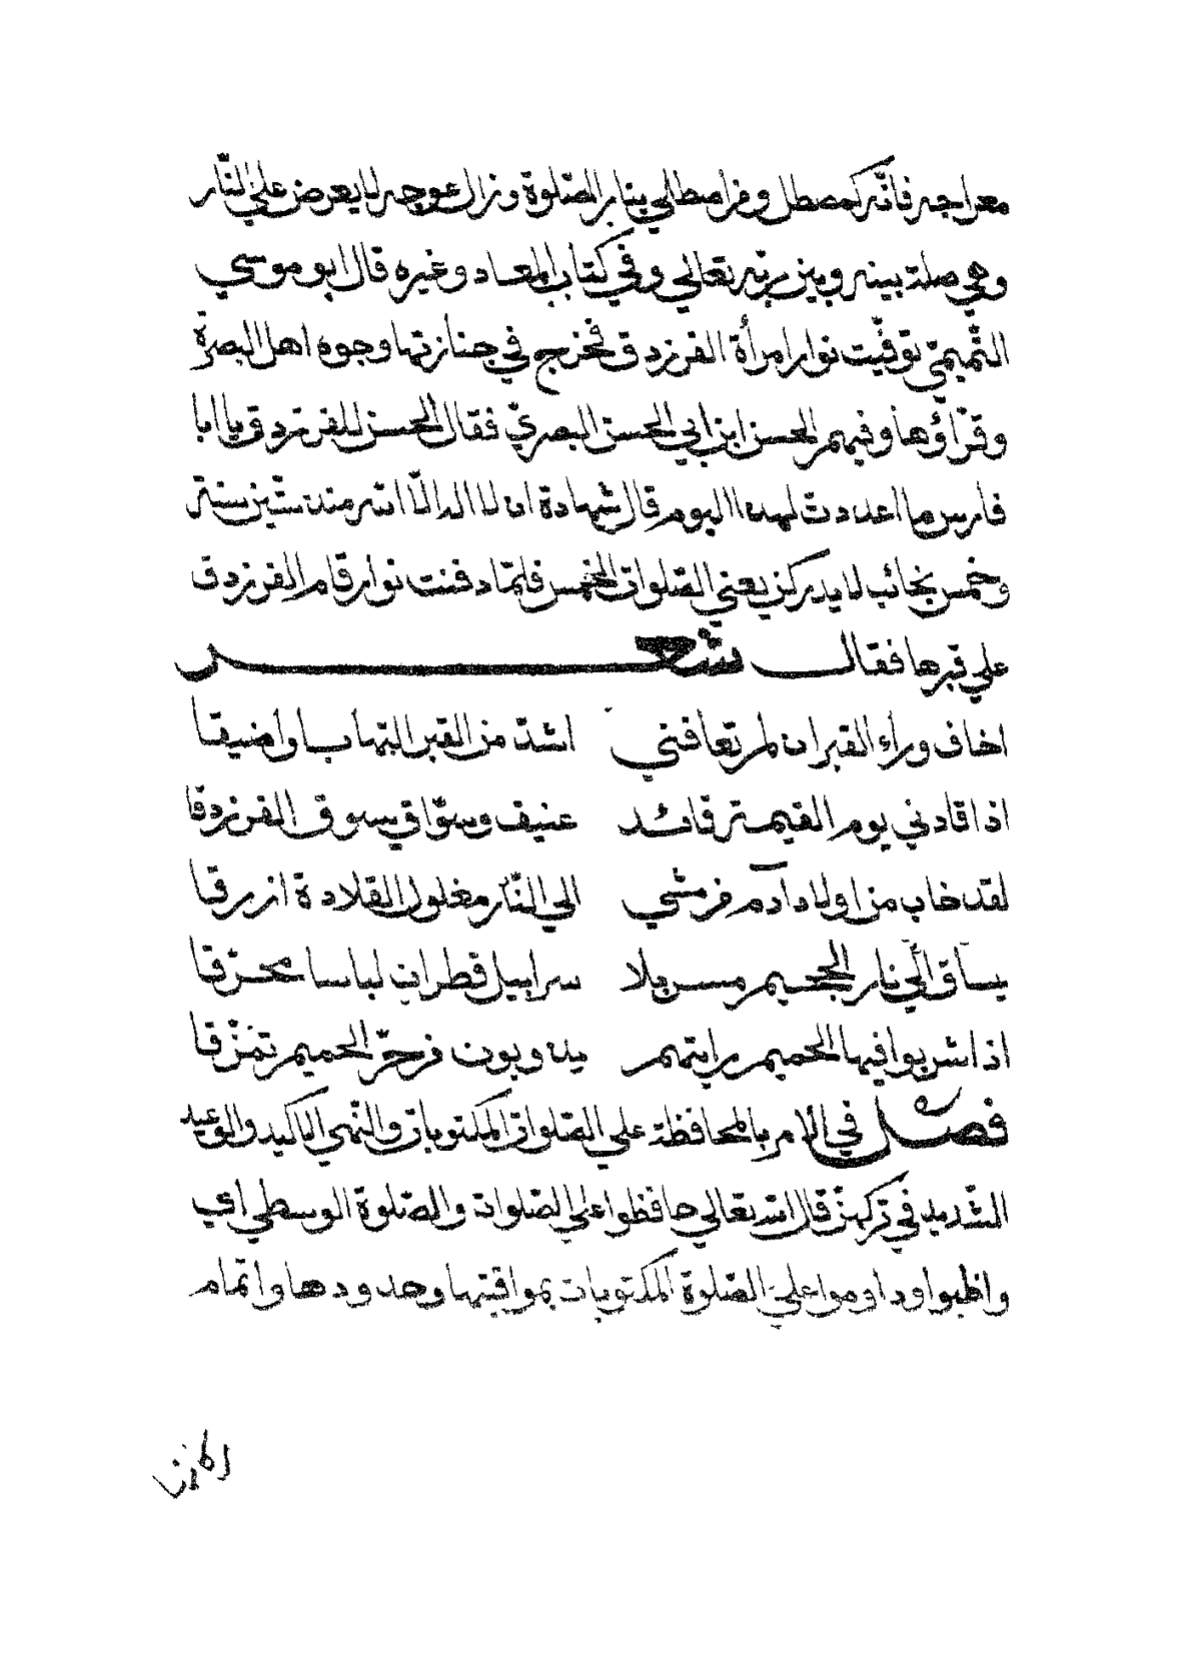 معراجه فانّه كمصطل ومن اصطلي بنار الصّلوة وزال عوجه لا يعرض علي النّار
وهي صلة بينه وبين ربّه تعالي وفي كتاب المعاد وغيره قال ابو موسي
التّميميّ توفّيت نوار امرأة الفرزدق فخرج في جنازتها وجوه اهل البصرة
وقرّاؤها وفيهم الحسن ابن ابي الحسن البصريّ فقال الحسن للفرزدق يا ابا
فارس ما اعددت لهذا اليوم قال شهادة ان لا اله الّا الله منذ ستّين سنة
وخمس نجائب لا يدركن يعني الصّلوات الخمس فلمّا دفنت نوار قام الفرزدق
علي قبرها فقال شعر
اخاف وراء القبر ان لم تعافني اشدّ من القبر التهابا واضيقا
اذا قادني يوم القيمة قائد عنيف وسوّاق يسوق الفرزدقا
لقد خاب من اولاد آدم من مشي الي النّار مغلول القلادة ازرقا
يساق الي نار الجحيم مسربلا سرابيل قطران لباسا محرّقا
اذا شربوا فيها الحميم رايتهم يذوبون من حرّ الحميم تمزّقا
فصل في الامر بالمحافظة علي الصّلوات المكتوبات والنّهي الاكيد والوعيد
الشّديد في تركهنّ قال الله تعالي حافظوا علي الصّلوات والصّلوة الوسطي اي
واظبوا وداوموا علي الصّلوة المكتوبات بمواقيتها وحدودها واتمام
اركانها